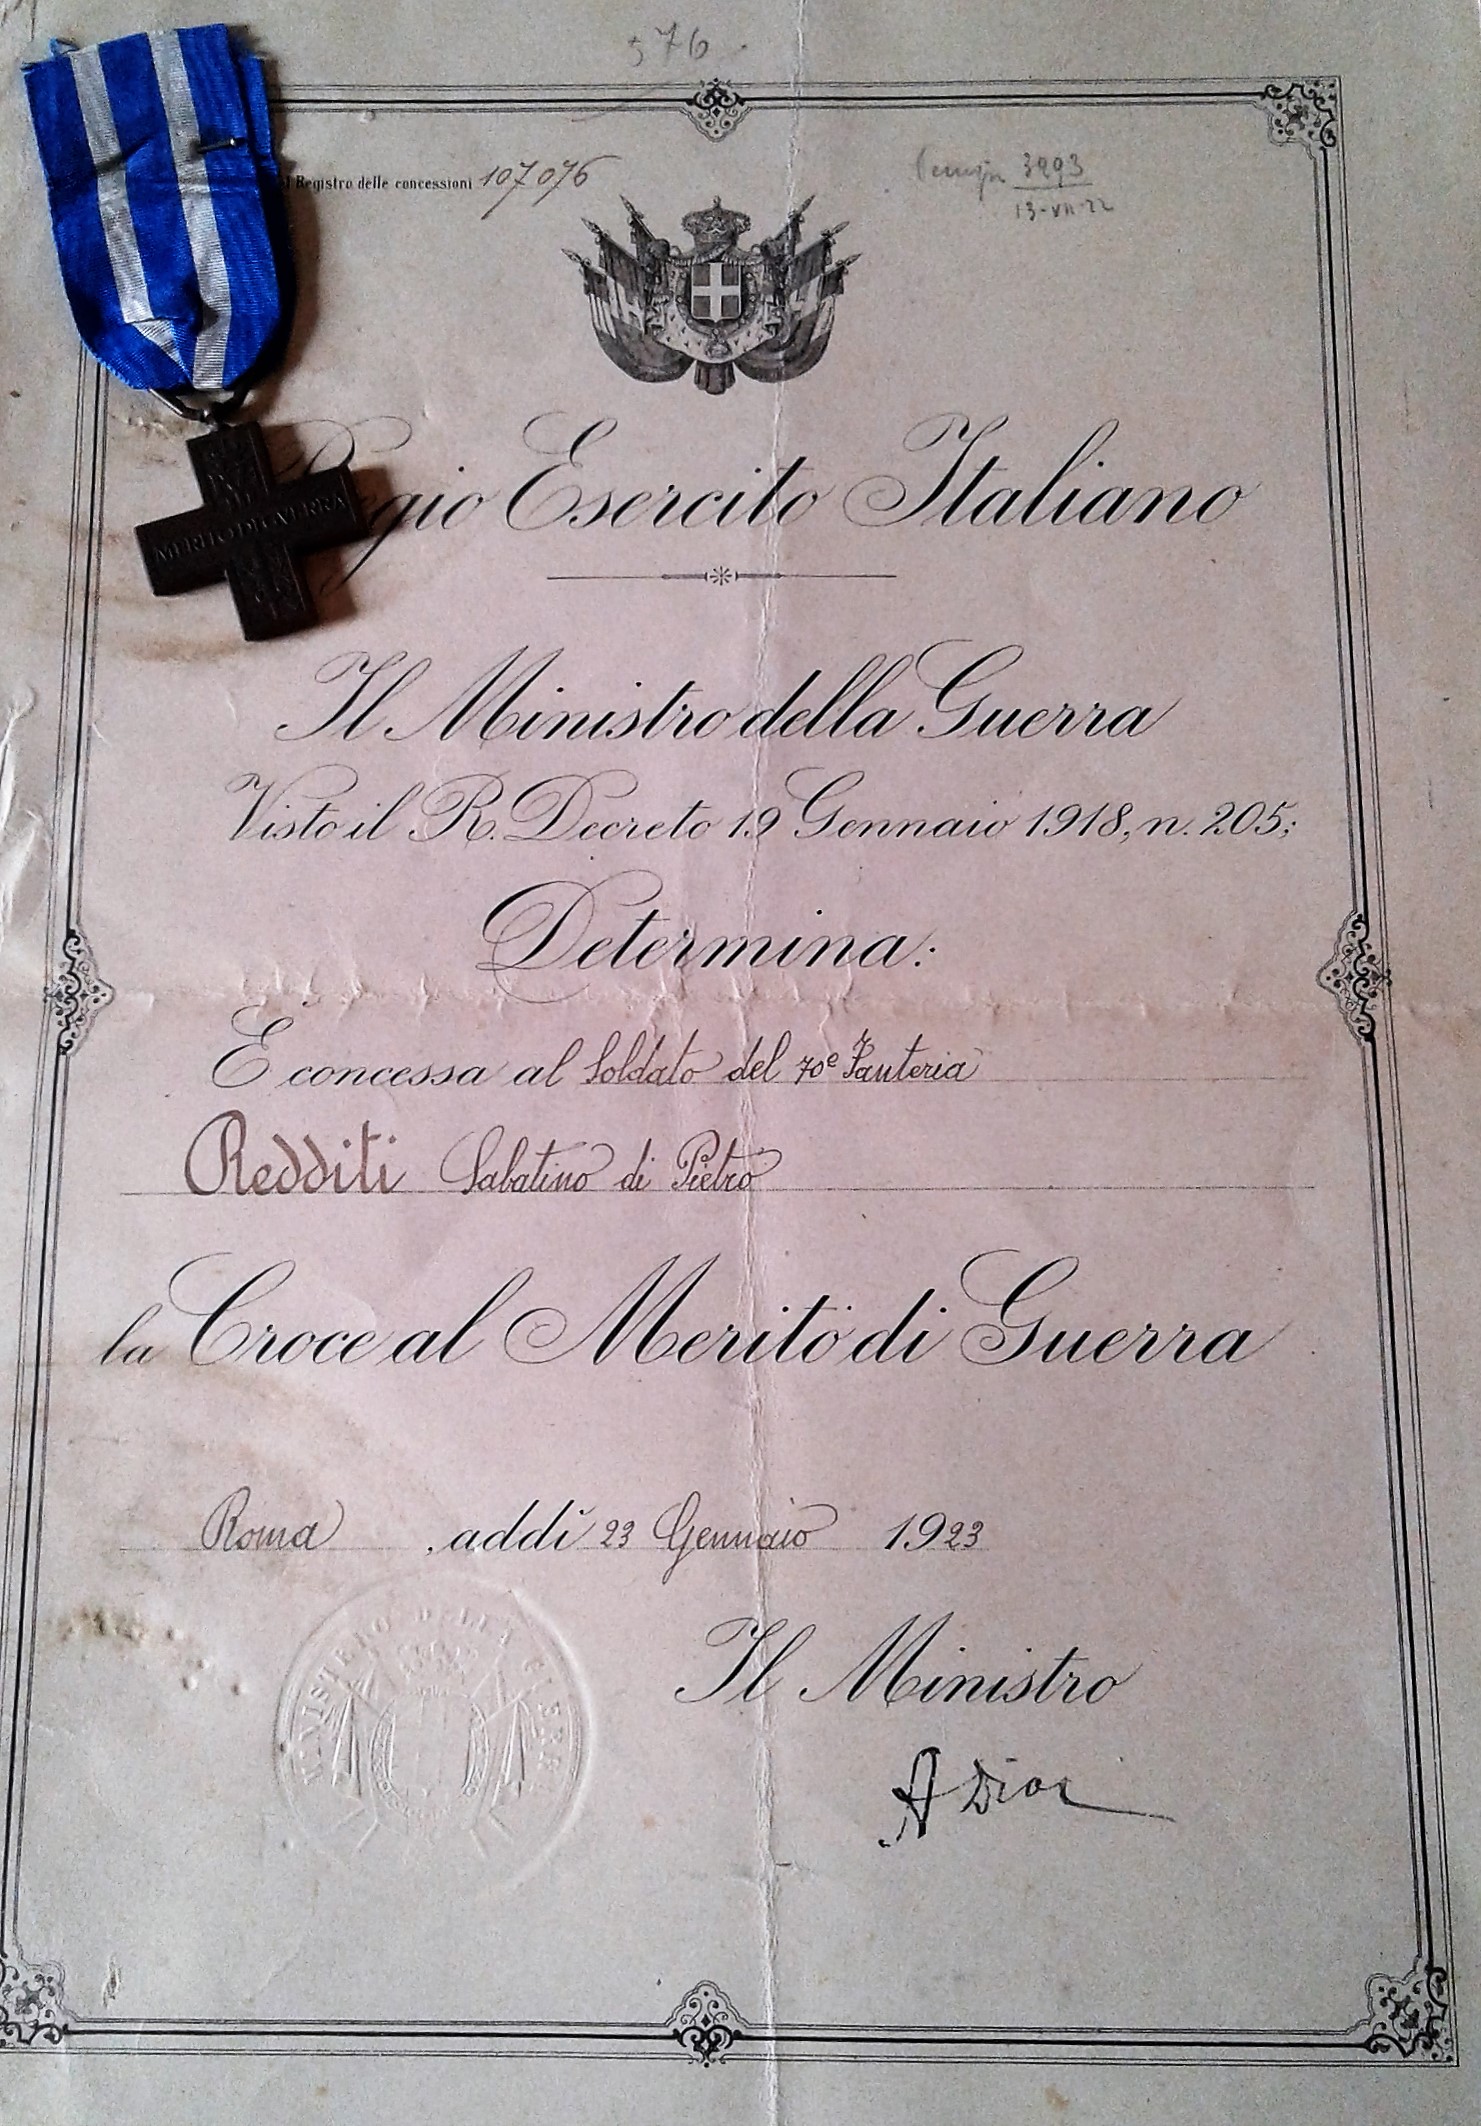 576
Registro delle concessioni 107076
3293
13-VII-22
Regio Esercito Italiano
MERITO DI GVERRA
Il Ministro della Guerra
Visto il R. Decreto 19 Gennaio 1918, n. 205;
Determina:
È concessa al Soldato del 70º Fanteria
Redditi Sabatino di Pietro
la Croce al Merito di Guerra
Roma, addì 23 Gennaio 1923
MINISTERO DELLA GUERRA
Il Ministro
A Diaz